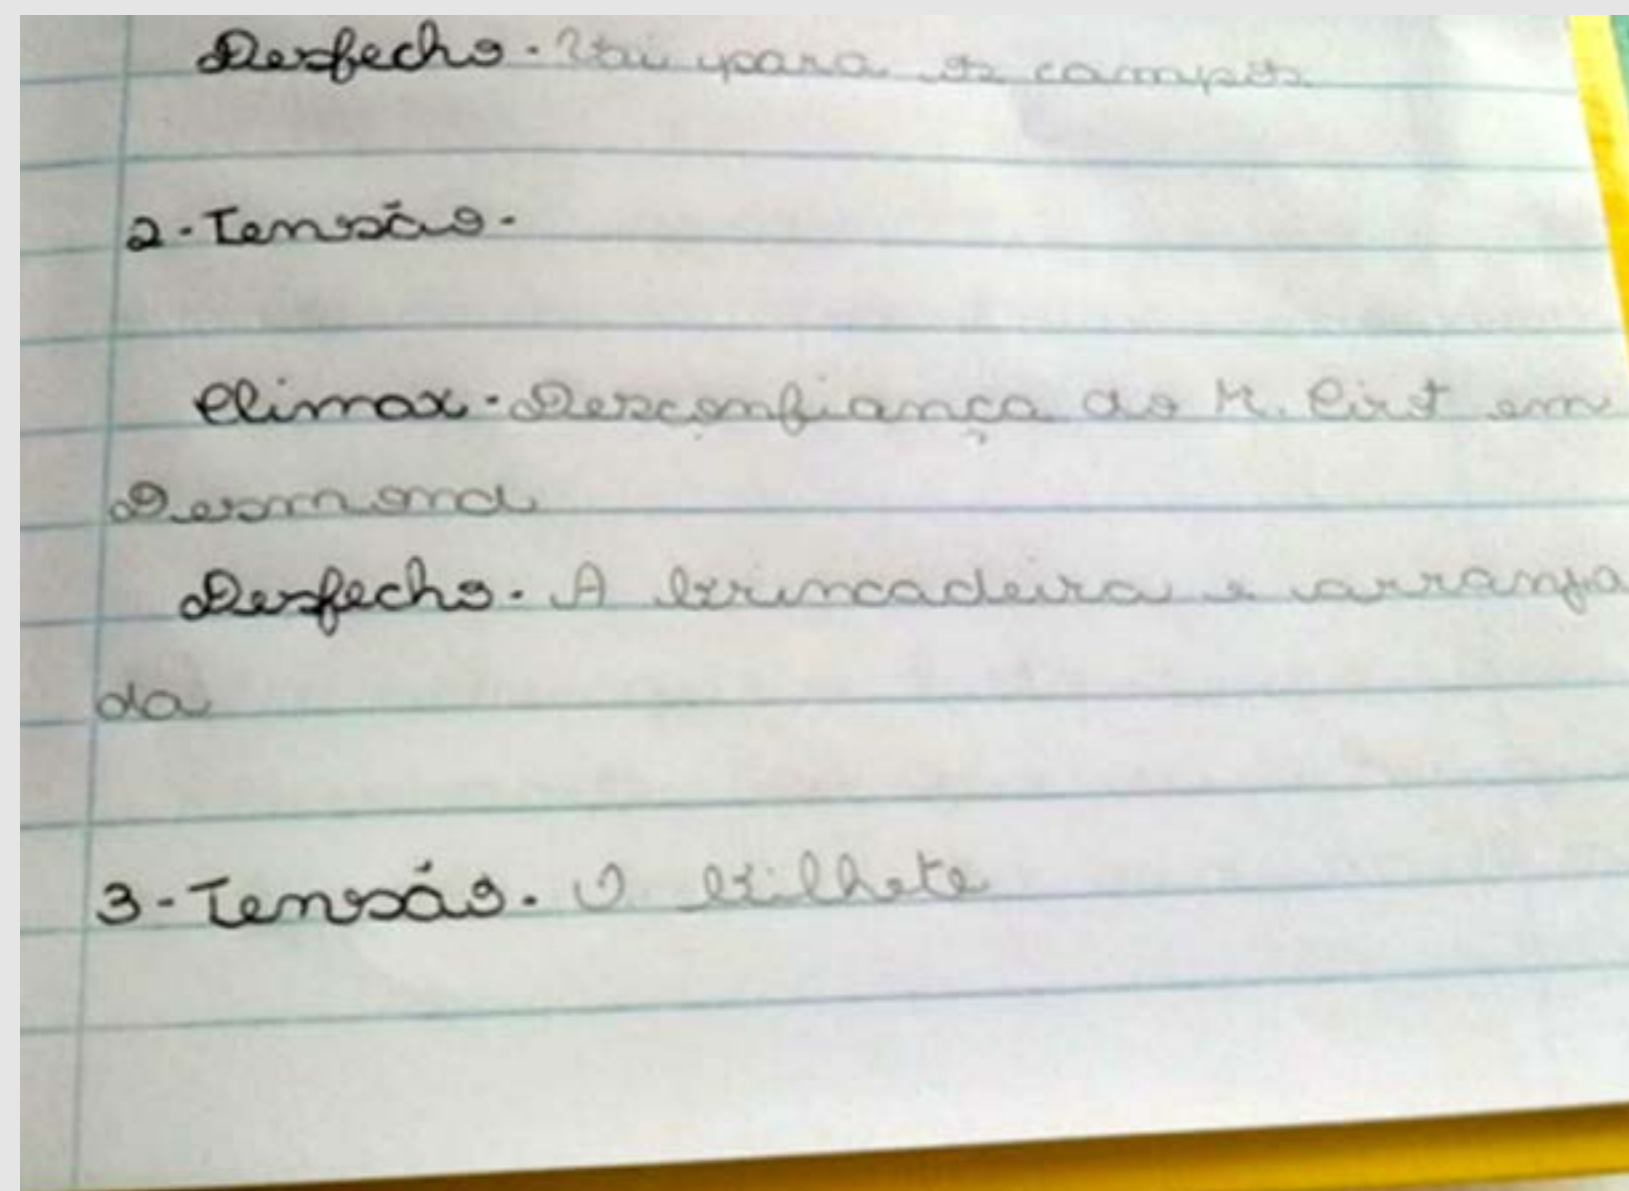 Desfecho. Vai para os campos
2-Tensão.
Climax. Desconfiança do M. Cist em
Desmond
Desfecho. A brincadeira e arranja
da
3-Tensão. O bilhete